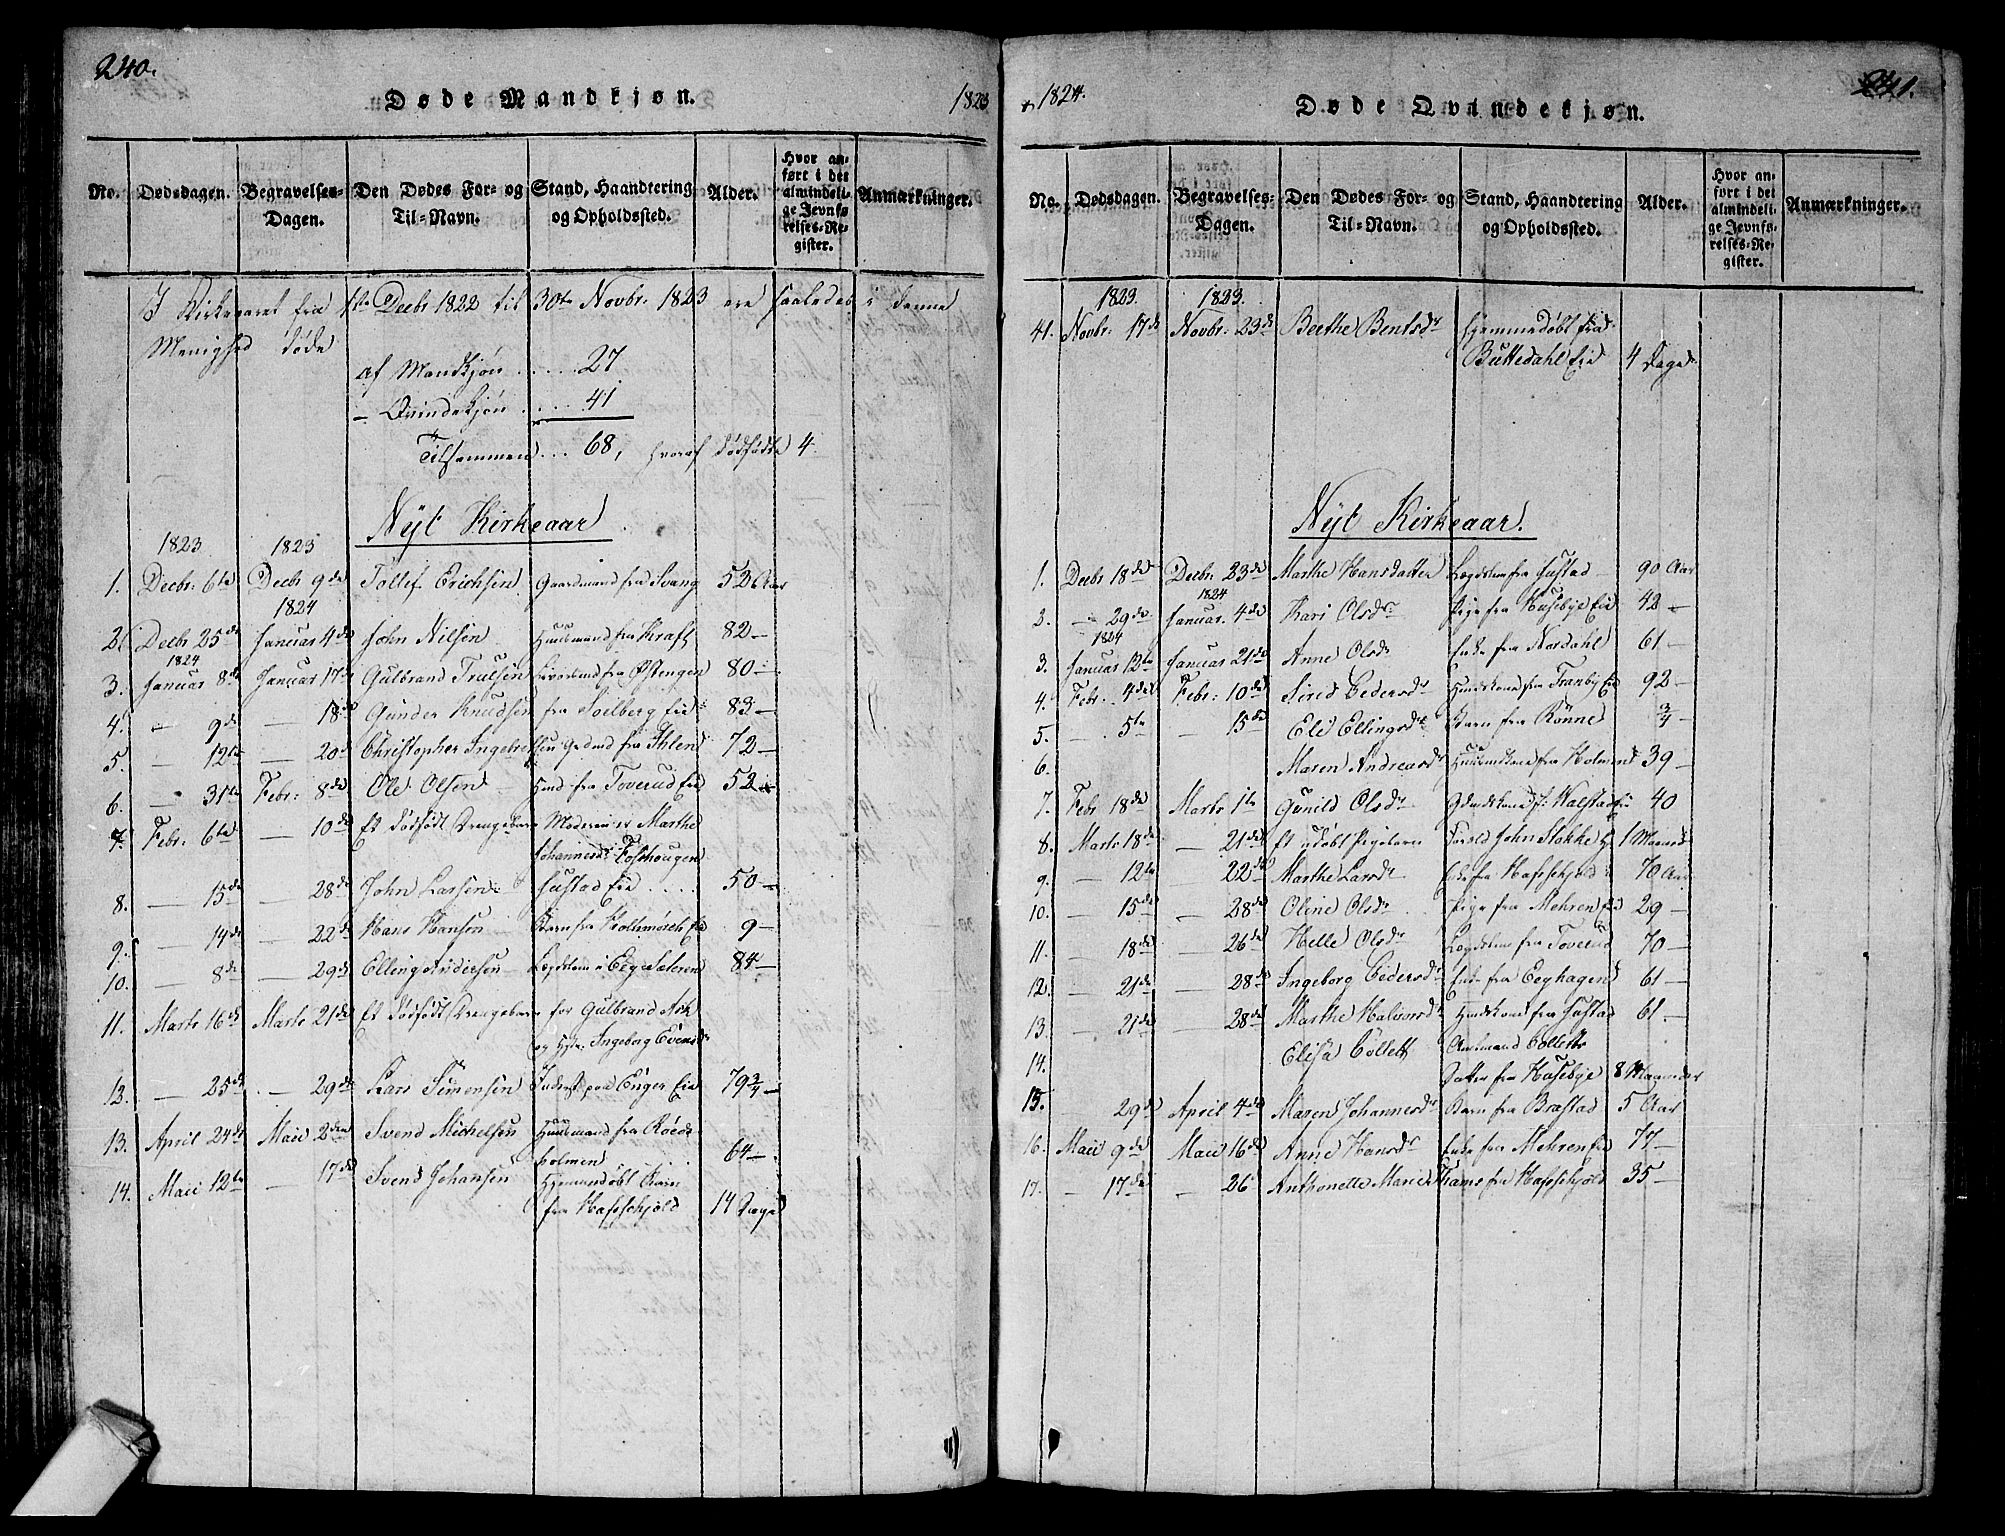 240.
Døde Mandkjøn.
1823
No. Dødsdagen. Begravelses-Dagen. Den Dødes For- og Til-Navn. Stand, Haandtering og Opholdssted. Alder. Hvor anført i det almindelige Jevnførelses-Register. Anmærkninger.
I Kirkeaaret fra 1ste Decbr 1822 til 30te Novbr: 1823 ere saaledes i denne
Menighed døde
af Mandkjøn ..... 27
- Qvindekjøn .... 41
Tilsammen ... 68, hvoraf dødfødte 4.
Nyt Kirkeaar
1823 1823
1. Decbr: 6te Decbr 9de Tollif Erichsen Gaardmand fra Svang 52 Aar
1824
2. Decbr 25de Januar 4de John Nilsen Huusmand fra Kraft 82 -
1824
3. Januar 8de Januar 17de Gulbrand Truelsen fra Østengen 80 -
4. - 9de - 18de Gunder Knudsen fra Solberg Eie 83 -
5. - 12te - 20de Christopher Ingebretsen Gdmd fra Ihlen 72 -
6. - 31te Febr: 8de Ole Olsen Hmd fra Toverud Eie 52 -
7. Febr: 6te - 10de Et dødfødt Drengebarn Moderen er Marthe
Johannesdr Foshougen
8. - 15de - 28de John Larsen Justad Eie .... 50 -
9. - 14de - 22de Hans Hansen Barn fra Holtmosch Eie 9 -
10. - 8de - 29de Elling Andersen Lægdslem i Eeg Sæteren 84 -
11. Marts 16de Marts 21de Et dødfødt Drengebarn for Gulbrand Ask
og Hstr: Ingeborg Evensdr
12. - 25de - 29de Lars Simensen Inderst paa Enger Eie 79 3/4 -
13. April 24de Maii 2den Svend Michelsen Huusmand fra Røeds-
holmen 64 -
14. Maii 12te - 17de Svend Johansen Hjemmedøbt Barn
fra Hafschjold 14 Dage
1824.
241.
Døde Qvindekjøn.
No. Dødsdagen. Begravelses-Dagen. Den Dødes For- og Til-Navn. Stand, Haandtering og Opholdssted. Alder. Hvor anført i det almindelige Jevnførelses-Register. Anmærkninger.
1823. 1823.
41. Novbr: 17de Novbr: 23de Berthe Bentsdr Hjemmedøbt fra
Buttedahl Eie 4 Dage
Nyt Kirkeaar.
1. Decbr 18de Decbr: 23de Marthe Hansdatter Lægdslem fra Justad 90 Aar
1824
2. - 29de Januar. 4de Kari Olsdr Pige fra Husebye Eie 42 -
1824
3. Januar 12te Januar 21de Anne Olsdr Enke fra Nordahl 61 -
4. Febr. 4de Febr: 10de Sired Pedersdr Huuskone fra Tranby Eie 92 -
5. - 5te - 15de Eli Ellingsdr Barn fra Rønne 3/4 -
6. Maren Andreasdr fra Holmen 39 -
7. Febr 18de Marts 1te Gunild Olsdr Gdmdskone fr: Halstad 40
8. Marts 18de - 21de Et udøbt Pigebarn Foræld John Stokke 1 Maaned
9. - 12te - 22de Marthe Larsdr Enke fra Hafschjold 70 Aar
10. - 15de - 28de Oline Olsdr Pige fra Mehren Eie 29 -
11. - 18de - 26de Helle Olsdr Lægdslem fra Toverud 70 -
12. - 21de - 28de Ingeborg Pedersdr Enke fra Eeghagen 61 -
13. - 21de - 28de Marthe Halvorsdr Hmdskone fra Justad 61 -
14. Elisa Collett Amtmand Colletts
Datter fra Husebye 8 Maaneder
15. 29de April 4de Maren Johannesdr Barn fra Bræstad 5 Aar
16. Maii 9de Maii 16de Anne Hansdr Enke fra Mehren Eie 77 -
17. - 17de - 26 Anthonette Marie Thams fra Hafschjold 35 -